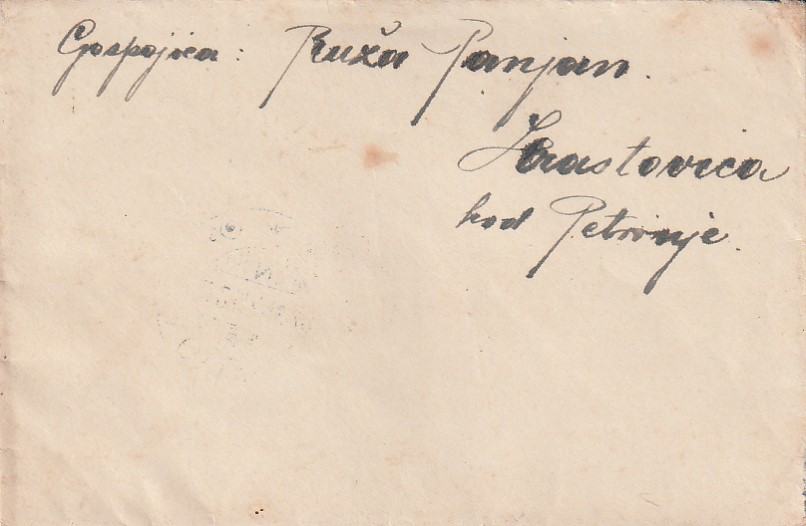 Gospojica: Ruža Panjan.
Hrastovica
kod Petrinje.